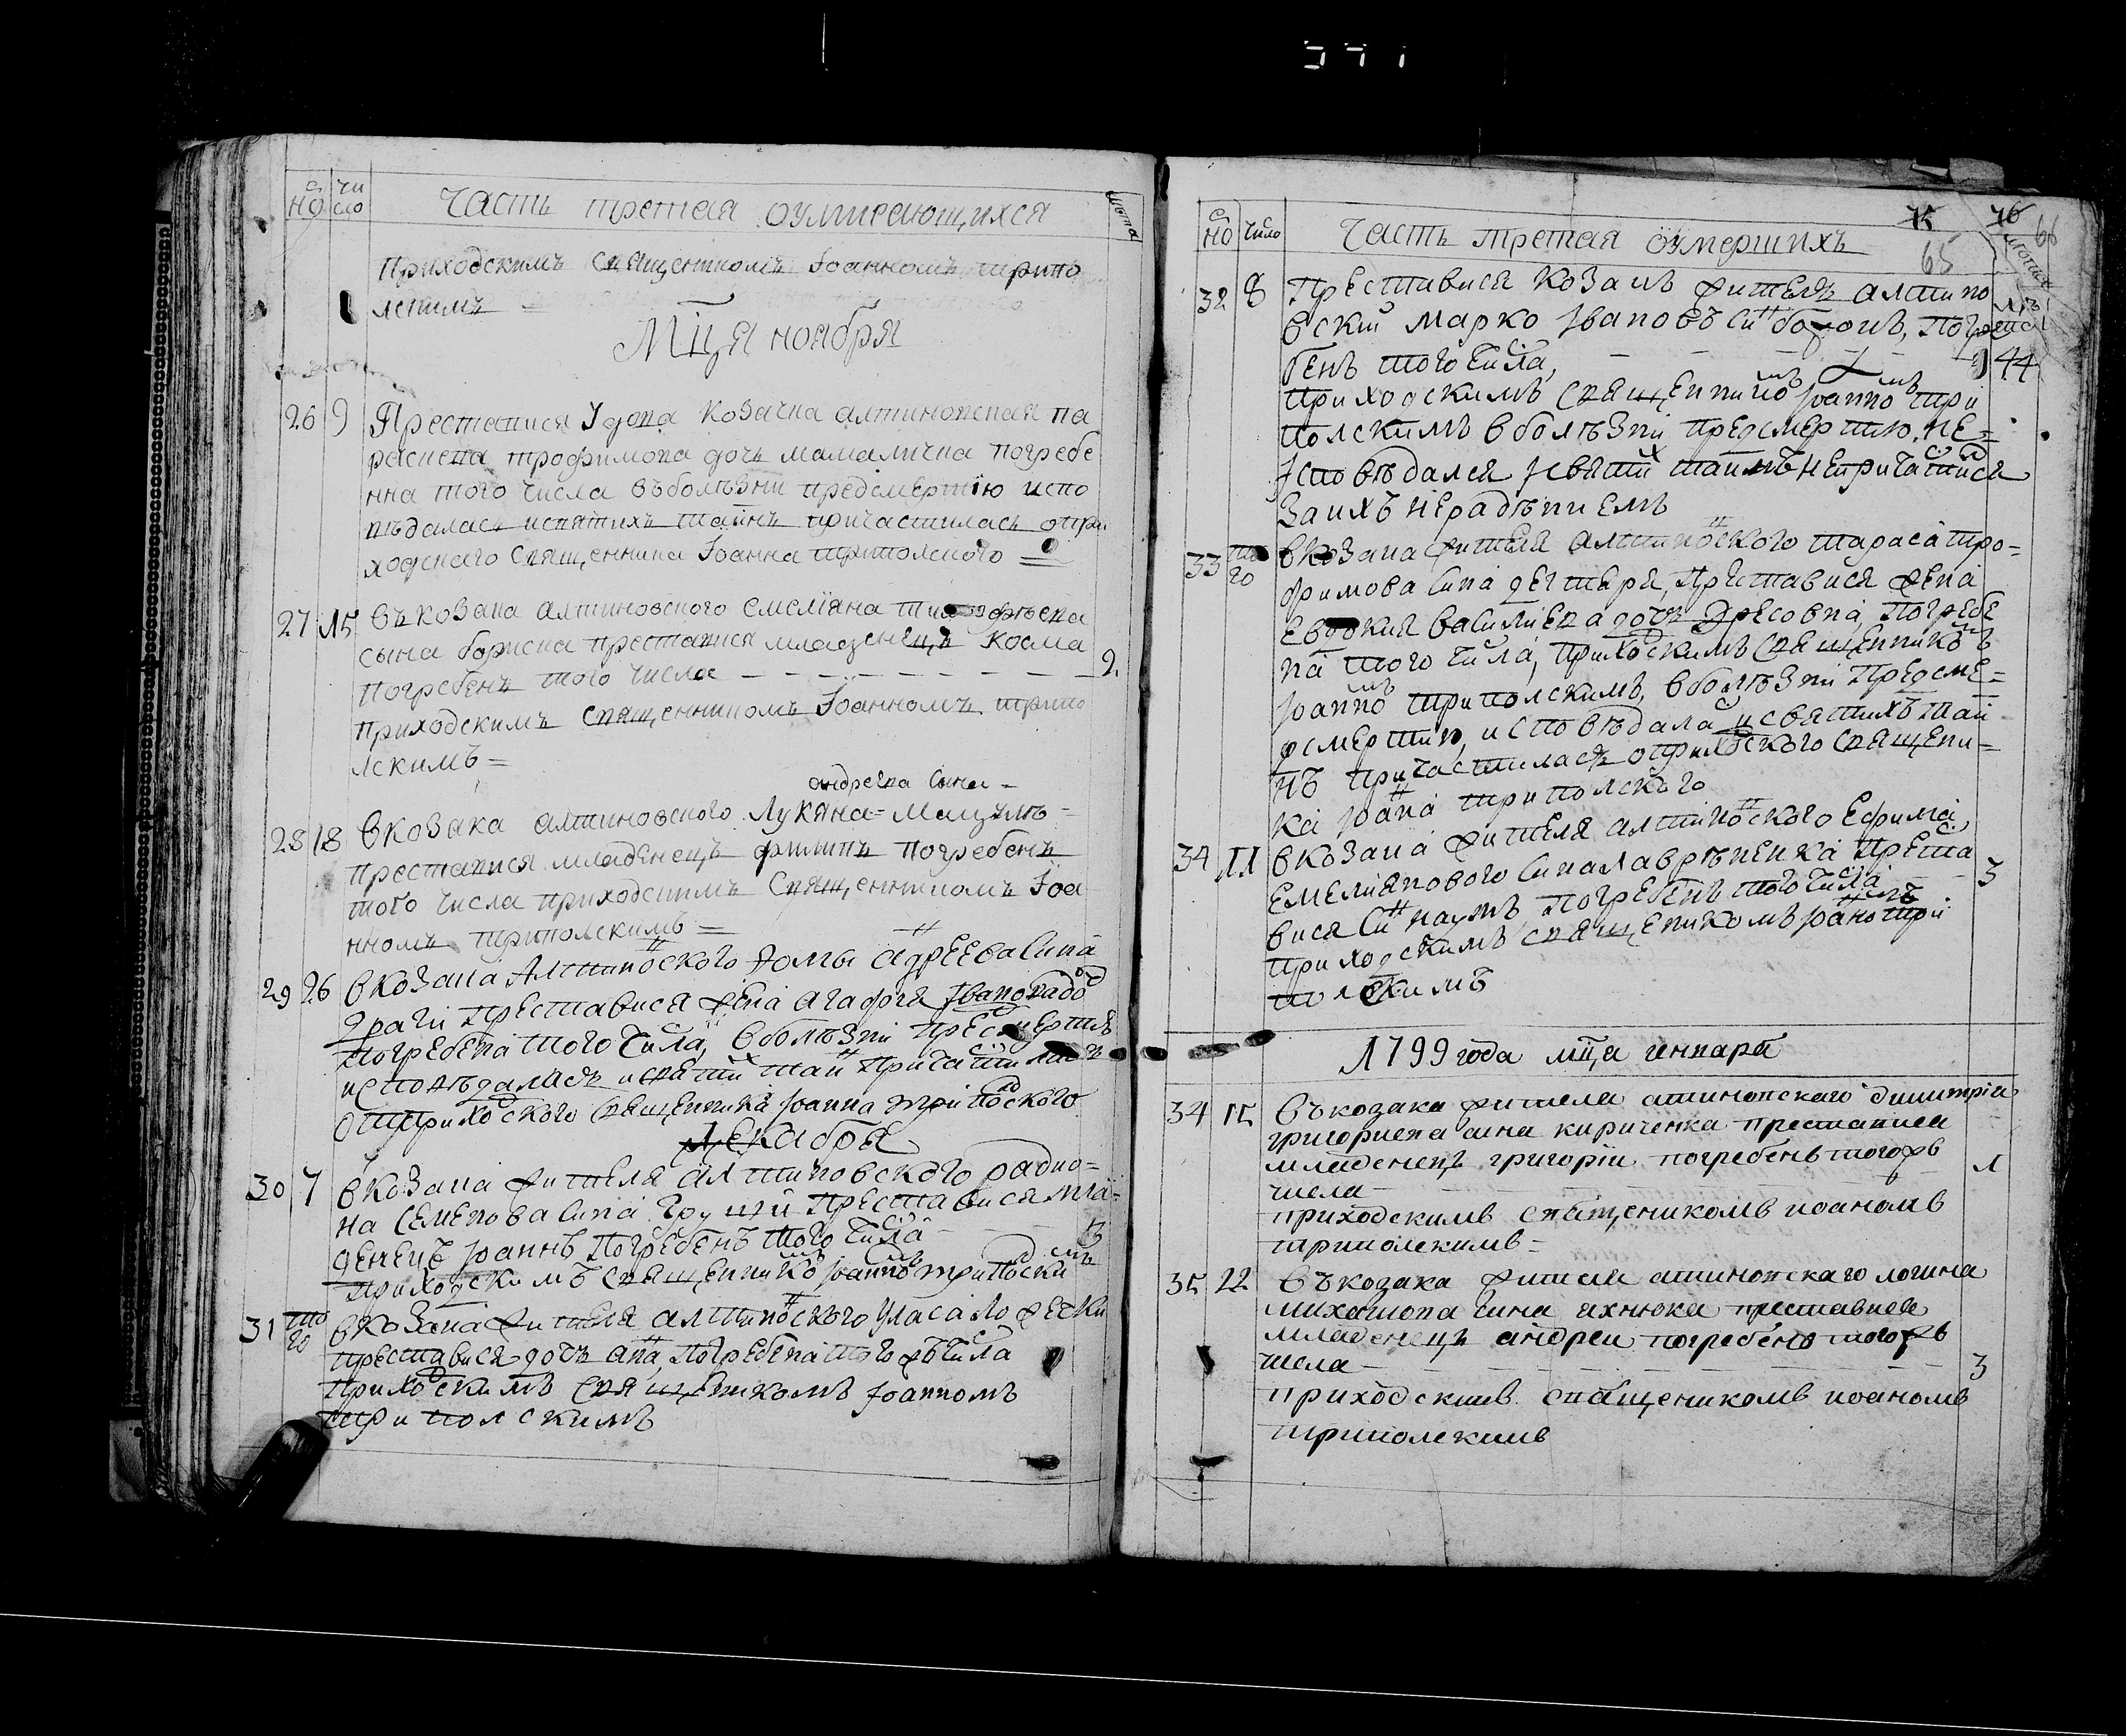 но число Часть третая оумирающихся лѣта
Приходскимъ Священникомъ Іоанномъ трипо
лскимъ
Мця ноября
26 9 Преставися Вдова козачка алтиновская па
раскева трофимова дочь мамалична погребе
нна того числа въболѣзни предсмертїю испо
вѣдалась исвятихъ таинъ причастилась отпри
ходскаго Священника Іоанна триполского
27 15 въ козака алтиновского емелїяна
сына бориска преставися младенецъ Косма
Погребенъ того числа 2
Приходскимъ Священникомъ Іоанномъ трипо
лскимъ =
андреева Сина =
28 18 в козака алтиновского Лукяна
преставися младенецъ филипъ погребенъ
того числа приходскимъ Священникомъ Іоа
нномъ триполскимъ =
29 26 в козака Алтиновского Фомы Андреева Сина
преставися жена агафия Іванова до
Погребена того числа, в болѣзни предсмертн
исповѣдалась исвятих таин Причастилась
Отприходского Священника Іоанна триполского
Декабря
30 7 в козака жителя алтиновского радио=
на Семенова Сина преставися мла=
денецъ Іоаннъ Погребенъ того числа
приходскимъ Священникомъ Іоанномъ триполскимъ
31 то го в козака жителя алтиновского Уласа
преставися дочь анна, погребена того жъ числа
Приходскимъ Священикомъ Іоанномъ
триполскимъ
75 76 66
65
но число Часть третая оумершихъ лѣта
32 8 Преставися козакъ житель алтино
вский марко Івановъ син погре
бенъ того числа, 44
приходскимъ Священникомъ Іоанномъ три
полскимъ в болѣзни предсмертню, не=
Исповѣдался Исвятих таинъ непричастился
заихъ нерадѣнием
33 то го в козака жителя алтиновского тараса тро=
фимова Сина дегтяра, преставися жена
Евдокия василиева дочь погребе
на того числа, приходскимъ Священникомъ
Іоанномъ триполскимъ, в болѣзни Предсме=
рсмертню, исповѣдалась исвятихъ таи
нъ причастилась отприходского Священи=
ка Іоана триполского
34 11 в козака жителя алтиновского Ефима,
Емелиянового Сина лаврѣненка преста
вися син наумъ погребенъ того числа 3
приходскимъ священикомъ Іоаномъ три
полскимъ
1799 года мца генваря
34 15 въ козака жителя атиновскаго димитрія
григориева сина кириченка преставися
младенецъ григорїи погребенъ тогожъ
числа 1
приходскимъ священикомъ иоаномъ
триполскимъ =
35 22 въ козака жителя атиновскаго логина
михаилова сина ихнюка преставися
младенецъ андреи погребенъ тогожъ
числа 3
приходскимъ священикомъ иоаномъ
триполскимъ